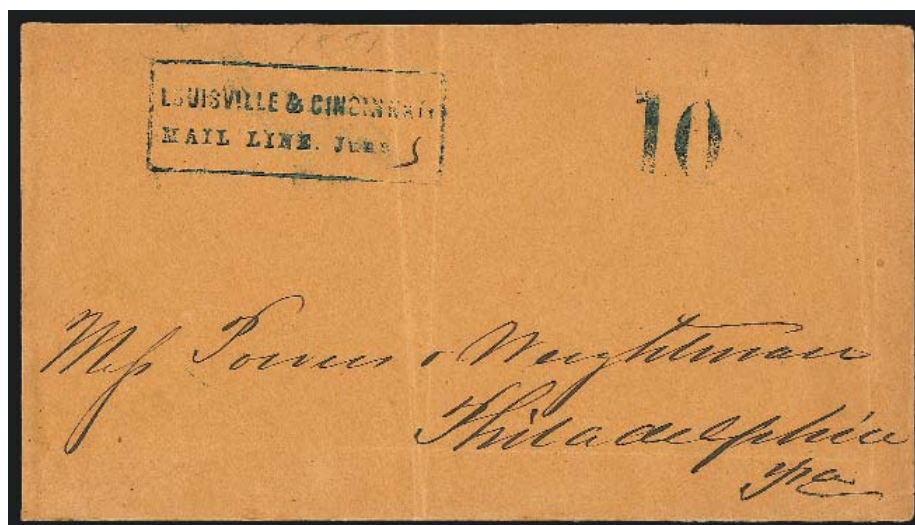 1851
LOUISVILLE & CINCINNATI
MAIL LINE. June 5
10
Mess Powers & Weightman
Philadelphia
Pa